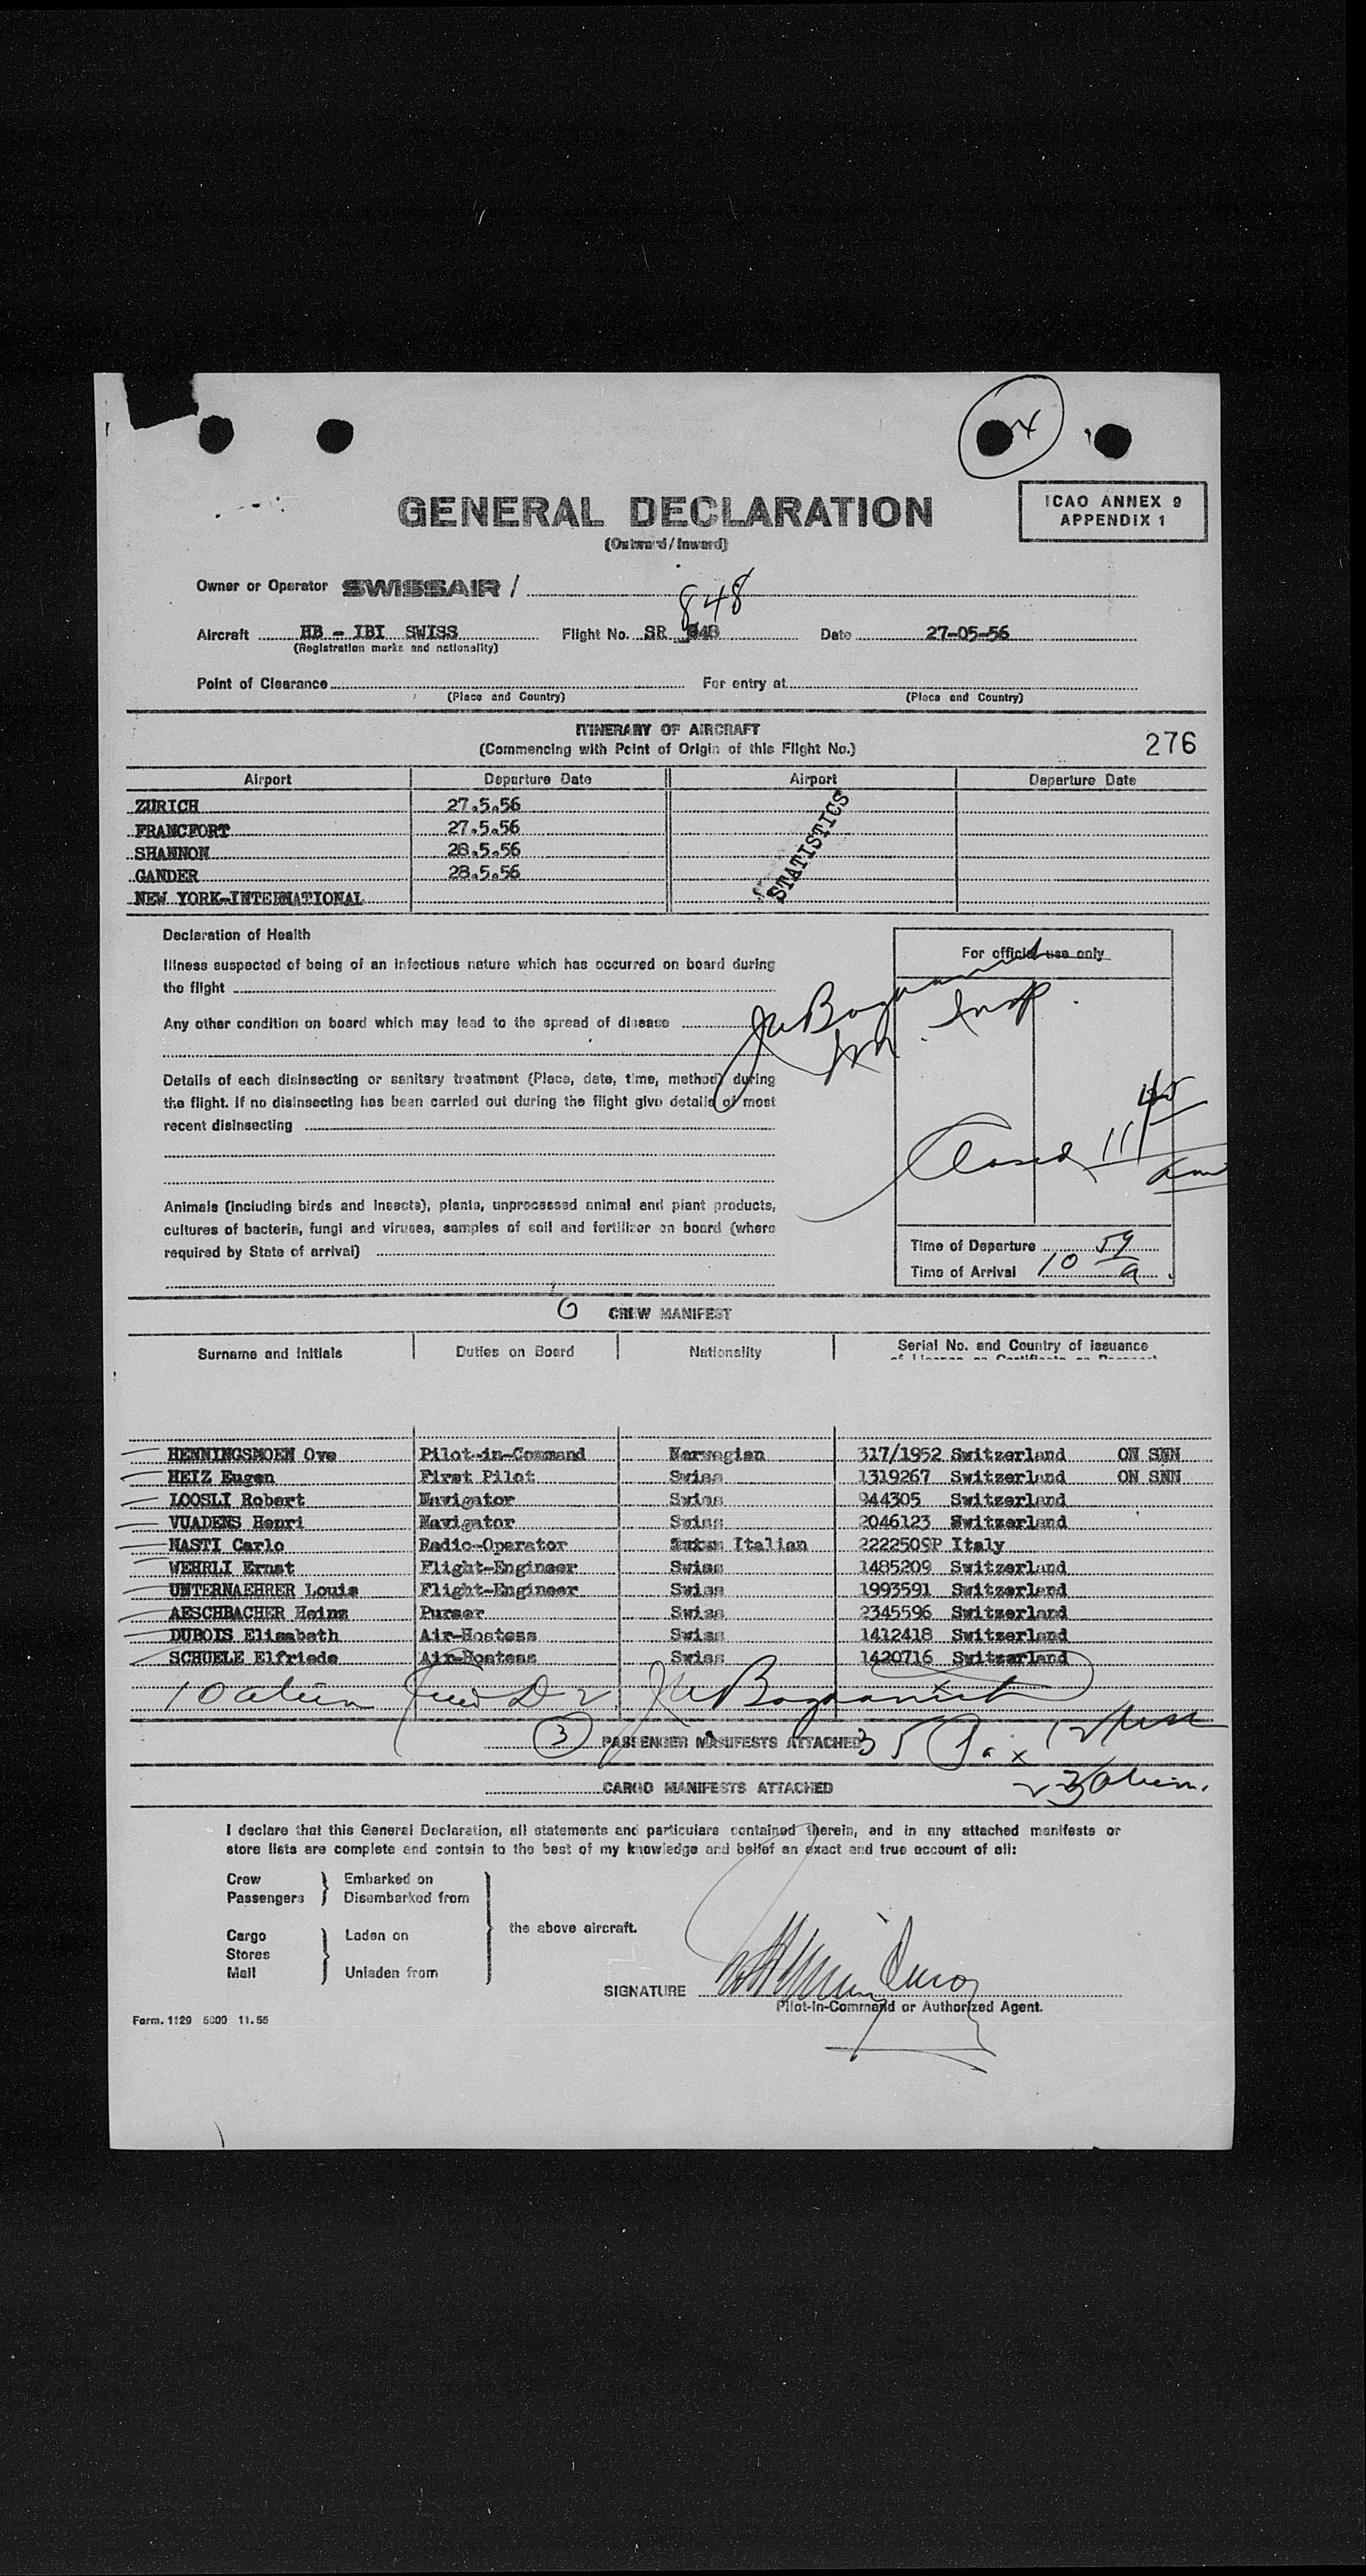 4
GENERAL DECLARATION
(Outward/Inward)
ICAO ANNEX 9
APPENDIX 1
Owner or Operator SWISSAIR /
848
Aircraft HB - IBI SWISS Flight No. SR 848 Date 27-05-56
(Registration marks and nationality)
Point of Clearance For entry at
(Place and Country) (Place and Country)
ITINERARY OF AIRCRAFT
(Commencing with Point of Origin of this Flight No.)
276
Airport Departure Date Airport Departure Date
ZURICH 27.5.56
FRANCFORT 27.5.56
SHANNON 28.5.56
GANDER 28.5.56
NEW YORK-INTERNATIONAL
STATISTICS
Declaration of Health
Illness suspected of being of an infectious nature which has occurred on board during
the flight
Any other condition on board which may lead to the spread of disease
Details of each disinsecting or sanitary treatment (Place, date, time, method) during
the flight. If no disinsecting has been carried out during the flight give details of most
recent disinsecting
Animals (including birds and insects), plants, unprocessed animal and plant products,
cultures of bacteria, fungi and viruses, samples of soil and fertilizer on board (where
required by State of arrival)
For official use only
Im. Insp.
Closed 11 45
am
Time of Departure
Time of Arrival 10 59 a
CREW MANIFEST
Surname and Initials Duties on Board Nationality Serial No. and Country of issuance
HENNINGSMOEN Ove Pilot-in-Command Norwegian 317/1952 Switzerland ON SNN
HEIZ Eugen First Pilot Swiss 1319267 Switzerland ON SNN
LOOSLI Robert Navigator Swiss 944305 Switzerland
VUADENS Henri Navigator Swiss 2046123 Switzerland
NASTI Carlo Radio-Operator Italian 2222509P Italy
WEHRLI Ernst Flight-Engineer Swiss 1485209 Switzerland
UNTERNAEHRER Louis Flight-Engineer Swiss 1993591 Switzerland
AESCHBACHER Heinz Purser Swiss 2345596 Switzerland
DUBOIS Elisabeth Air-Hostess Swiss 1412418 Switzerland
SCHUELE Elfriede Air-Hostess Swiss 1420716 Switzerland
10 alien
3 PASSENGER MANIFESTS ATTACHED 35 Pax
CARGO MANIFESTS ATTACHED
I declare that this General Declaration, all statements and particulars contained therein, and in any attached manifests or
store lists are complete and contain to the best of my knowledge and belief an exact and true account of all:
Crew Embarked on
Passengers Disembarked from
the above aircraft.
Cargo Laden on
Stores
Mail Unladen from
SIGNATURE
Pilot-in-Command or Authorized Agent.
Form. 1129 5000 11.55